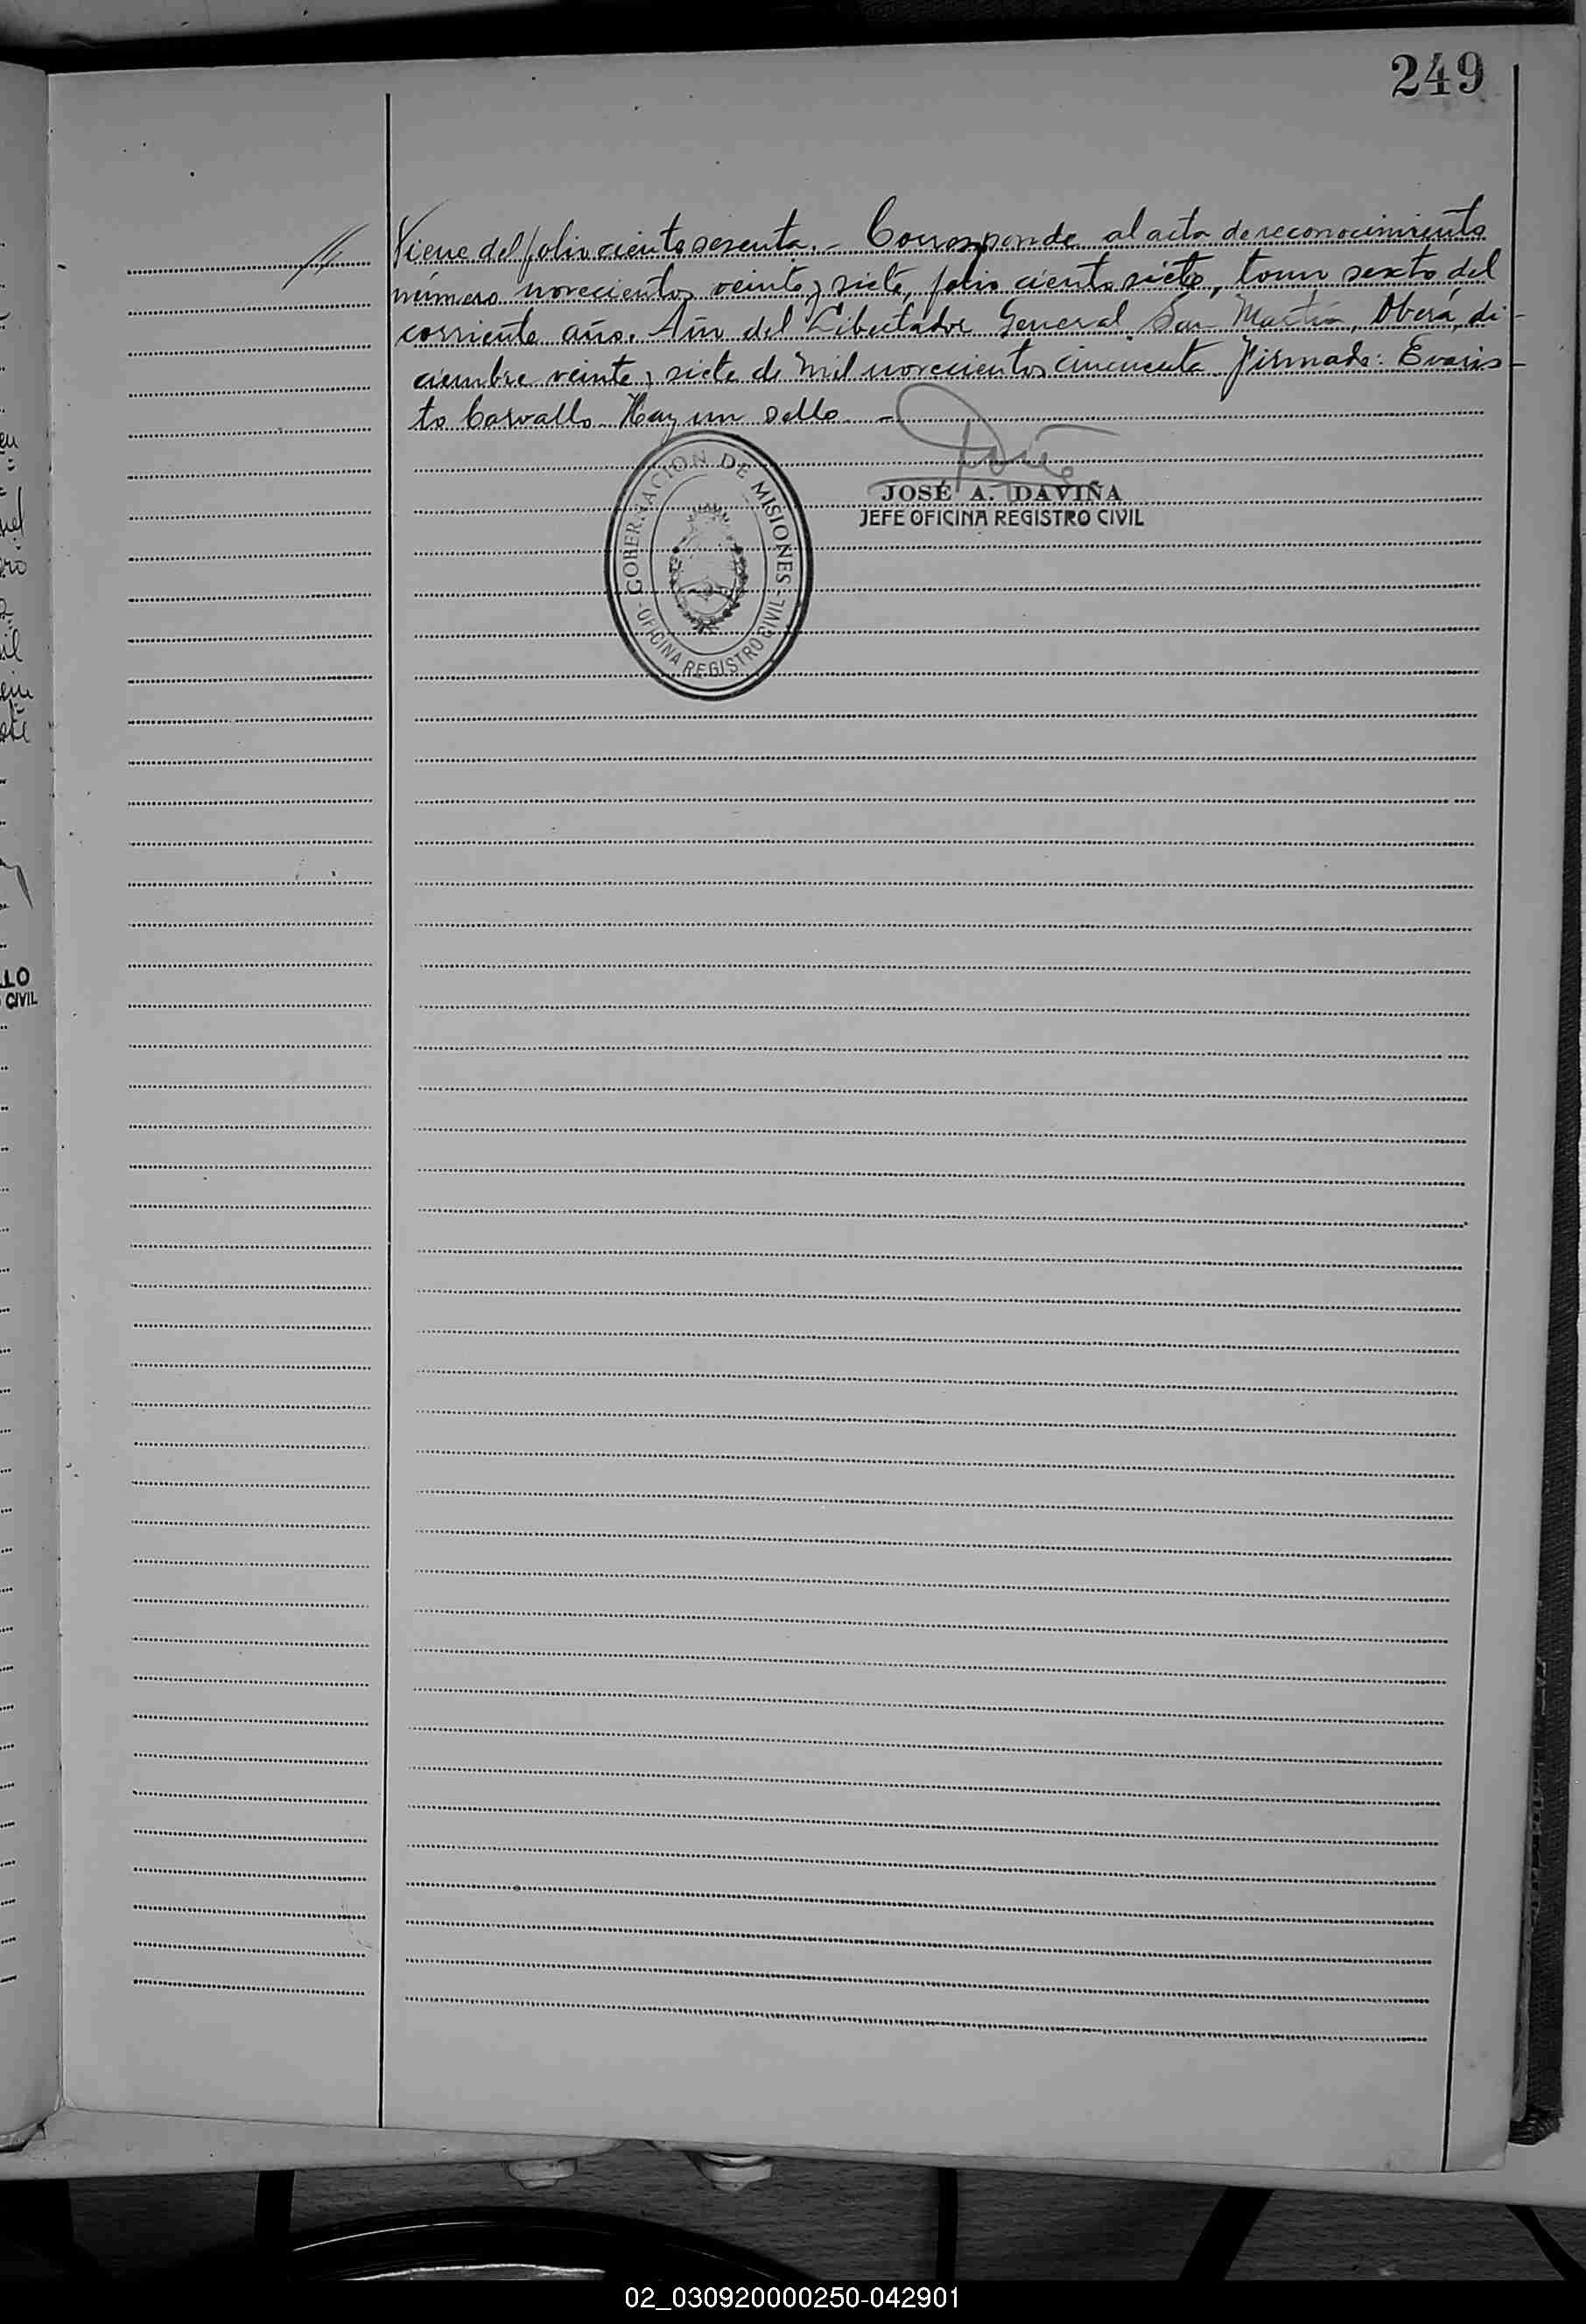 249
Viene del folio ciento sesenta.- Corresponde al acta de reconocimiento
número novecientos veinte y siete, folio ciento siete, tomo sexto del
corriente año. Año del Libertador General San Martín, Oberá, di-
ciembre veinte y siete de mil novecientos cincuenta. Firmado: Evaris-
to Carvallo. Hay un sello.-
JOSÉ A. DAVIÑA
JEFE OFICINA REGISTRO CIVIL
GOBERNACION DE MISIONES
- OFICINA REGISTRO CIVIL -
LLO
CIVIL
02_030920000250-042901